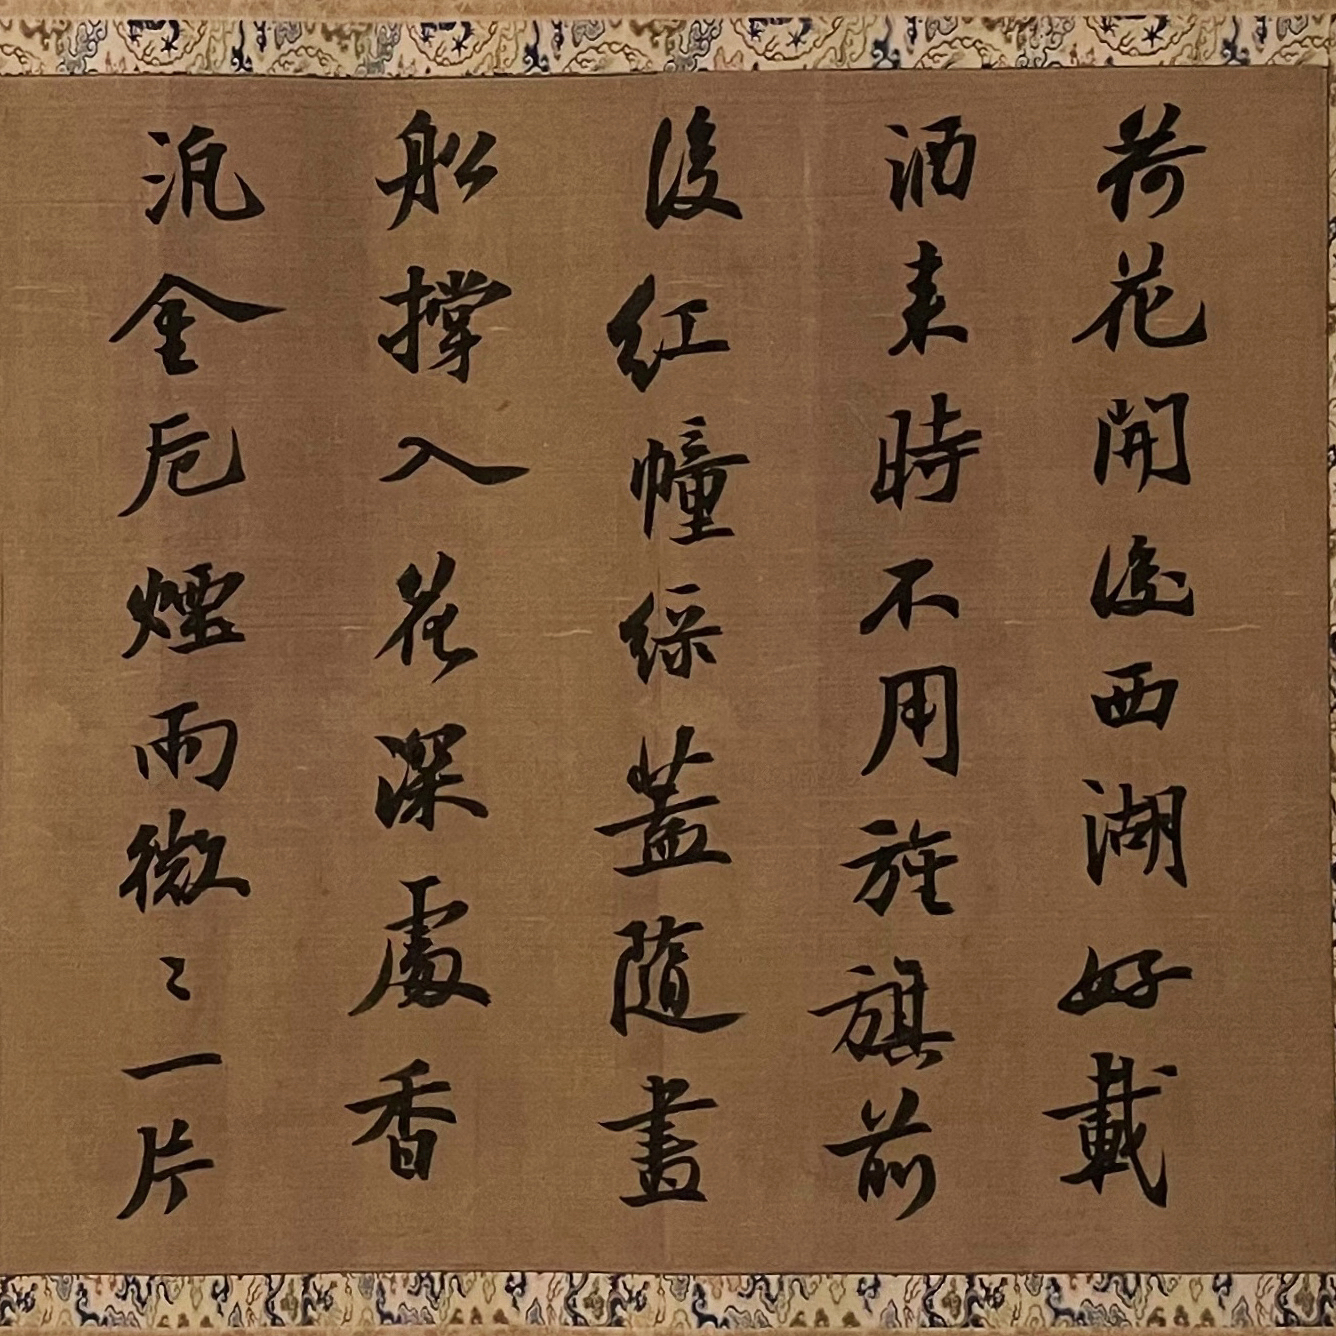 荷花開後西湖好載
酒来時不用旌旗前
後紅幢綠蓋隨畫
船撑入花深處香
泛金卮煙雨微〻一片